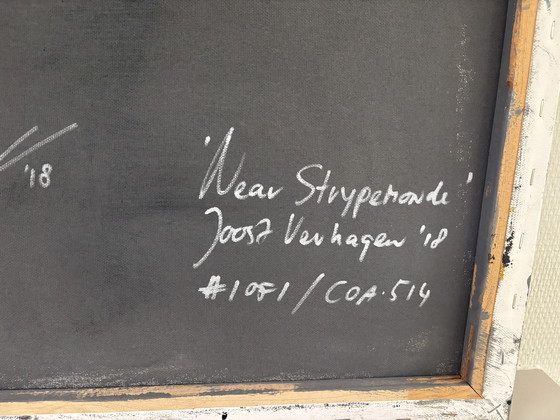 '18
'Near Strypemonde'
Joost Verhagen '18
#1OF1 / COA.514